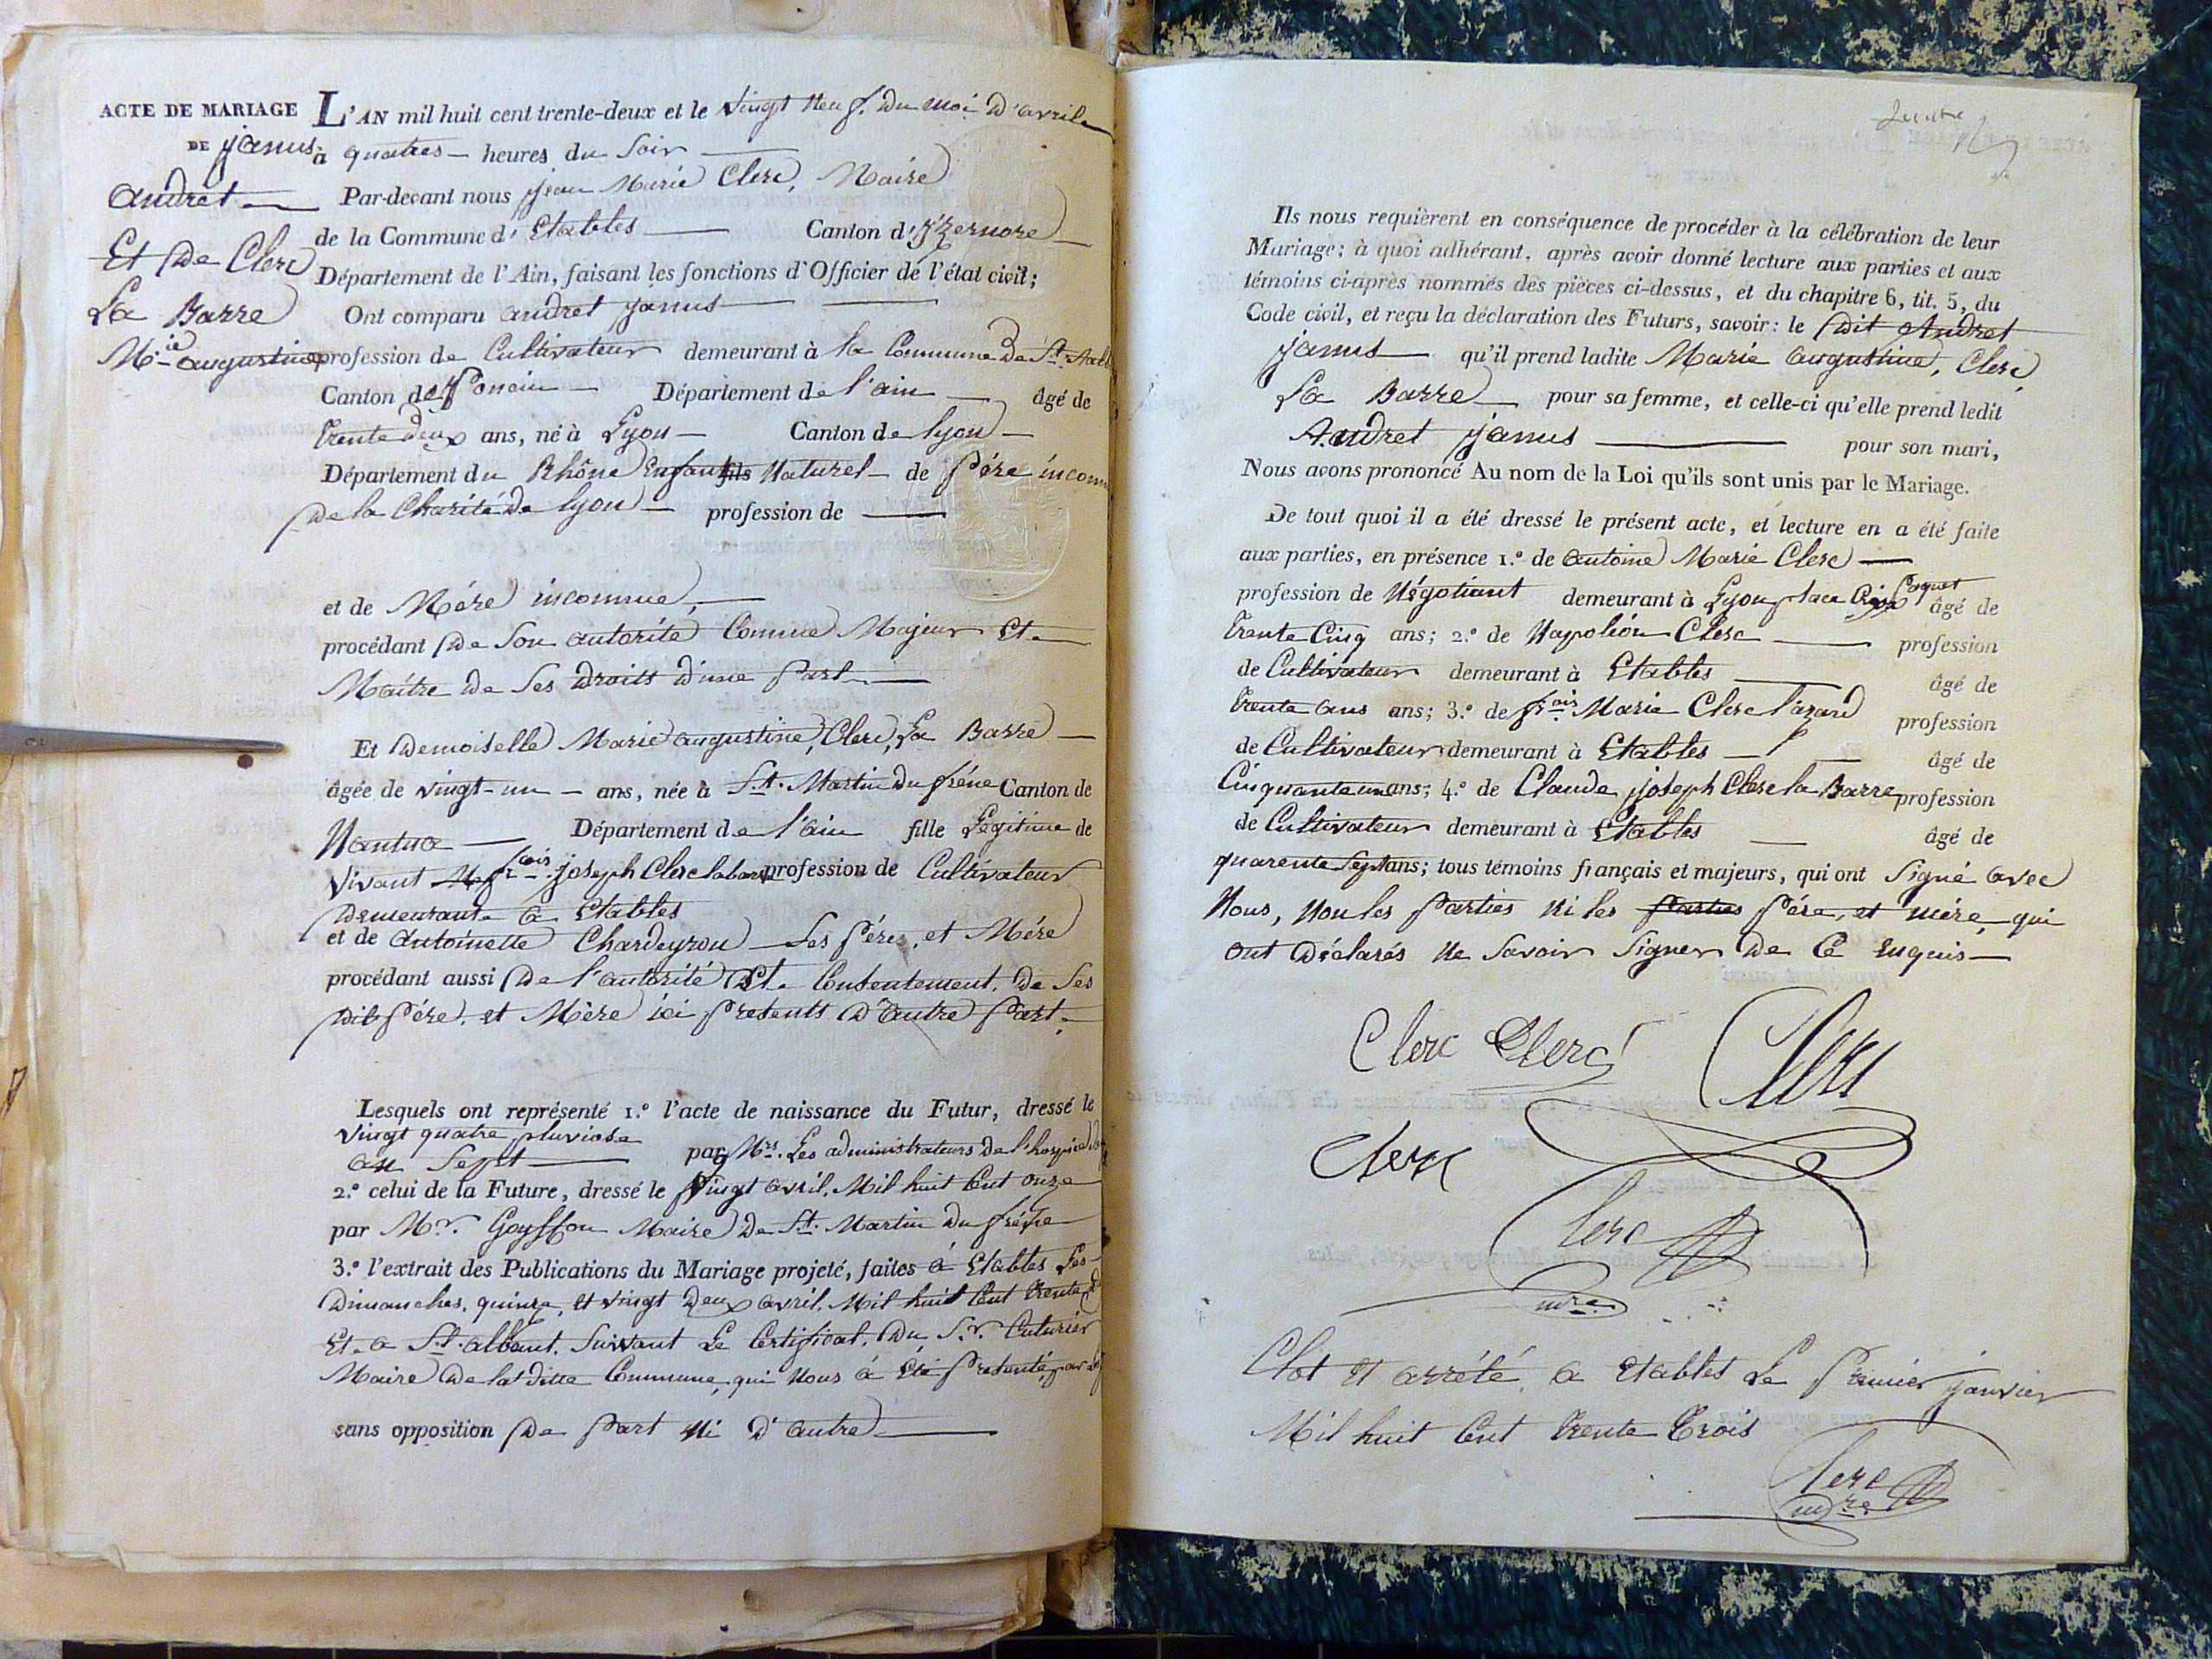 ACTE DE MARIAGE
DE janus
andret
Et De Clerc
La Barre
M.ie augustine
L'AN mil huit cent trente-deux et le vingt neuf. Du moi D'avril
à quatres heures du Soir
Par-devant nous jean Marie Clerc, Maire
de la Commune d' Etables Canton d' yzernore
Département de l'Ain, faisant les fonctions d'Officier de l'état civil;
Ont comparu andret janus
profession de Cultivateur demeurant à la Commune De St.
Canton de Poncin Département de l'ain âgé de
trente deux ans, né à Lyon Canton de lyon
Département du Rhône Enfant fils Naturel de Père
De la Charité De lyon profession de
et de Mère inconnue,
procédant De Son autorité Comme Majeur Et
Maître De Ses Droits D'une Part.
Et Demoiselle Marie augustine, Clerc, La Barre
âgée de vingt-un ans, née à St. Martin Du frêne Canton de
Nantua Département de l'ain fille Légitime de
Vivant fr.ois joseph Clerc labarre profession de Cultivateur
Demeurant à Etables
et de antoinette Chardeyron Ses Père, et Mére
procédant aussi De l'autorité Et Consentement. De Ses
Dit Père. et Mère ici Presents D'autre Part.
Lesquels ont représenté 1.° l'acte de naissance du Futur, dressé le
Vingt quatre pluviose
an Sept par Mrs. Les administrateurs De l'hospice
2.° celui de la Future, dressé le Vingt avril. Mil huit Cent onze
par Mr. Goyffon Maire De St. Martin Du frêne
3.° l'extrait des Publications du Mariage projeté, faites à Etables Les
Dimanches, quinze, et vingt Deux avril. Mil huit Cent trente
Et a St. albant. Suivant Le Certificat. Du Sr. Cuturier
Maire De la ditte Commune, qui Nous à été Presenté,
sans opposition De Part Ni D'autre
Ils nous requièrent en conséquence de procéder à la célébration de leur
Mariage; à quoi adhérant, après avoir donné lecture aux parties et aux
témoins ci-après nommés des pièces ci-dessus, et du chapitre 6, tit. 5, du
Code civil, et reçu la déclaration des Futurs, savoir: le Dit Andret
janus qu'il prend ladite Marie augustine, Clerc,
La Barre pour sa femme, et celle-ci qu'elle prend ledit
Andret janus pour son mari,
Nous avons prononcé Au nom de la Loi qu'ils sont unis par le Mariage.
De tout quoi il a été dressé le présent acte, et lecture en a été faite
aux parties, en présence 1.° de antoine Marie Clerc
profession de Négotiant demeurant à Lyon place Croix Paquet âgé de
trente Cinq ans; 2.° de Napoléon Clerc profession
de Cultivateur demeurant à Etables âgé de
trente ans ans; 3.° de fr.ois Marie Clerc lazard profession
de Cultivateur demeurant à Etables âgé de
Cinquante un ans; 4.° de Claude joseph Clerc la Barre profession
de Cultivateur demeurant à Etables âgé de
quarente Sept ans; tous témoins français et majeurs, qui ont Signé avec
Nous, Non les Parties Ni les Parties Père, et mère, qui
ont Déclarés Ne Savoir Signer De Ce Enquis
Clerc Clerc Clerc
Clerc
Clerc
mre
Clot et arrété a Etables Le Premier janvier
Mil huit Cent trente trois
Clerc
mre